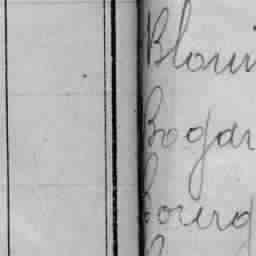 Bloui
Bogar
Bourg